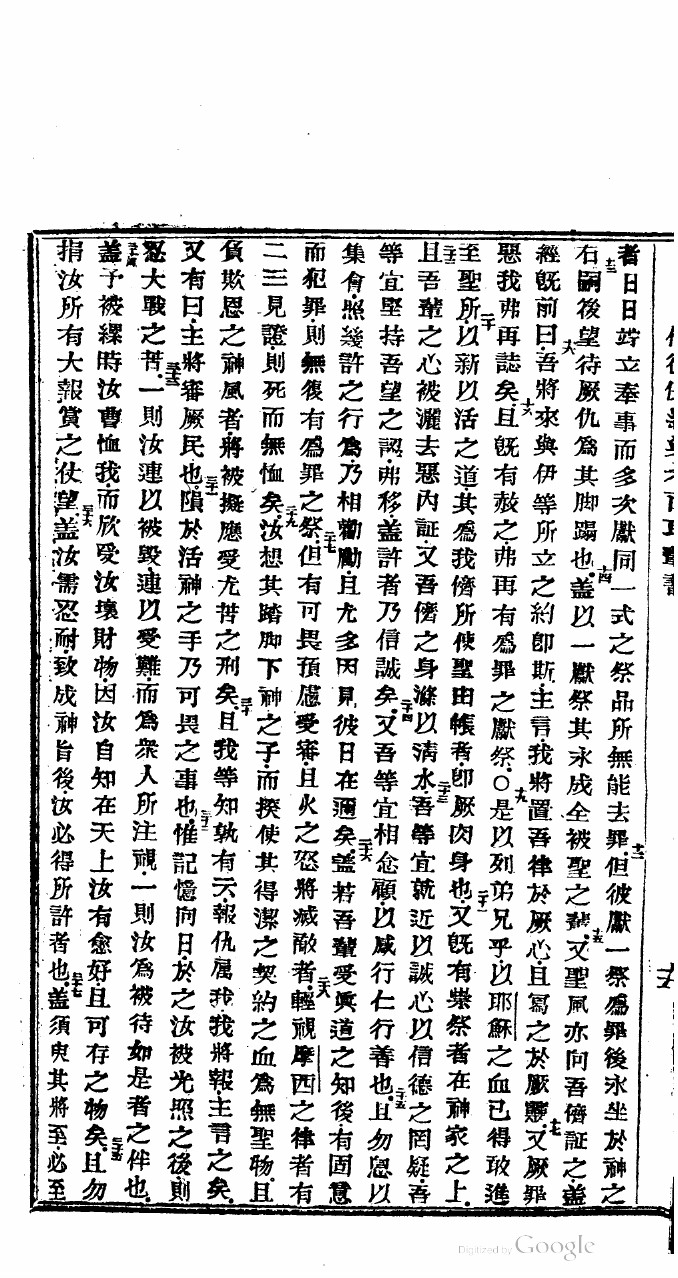 者日日竚立奉事而多次獻同一式之祭品所無能去罪十二但彼獻一祭爲罪後永坐於神之
右十三嗣後望待厥仇爲其脚踢也十四蓋以一獻祭其永成全被聖之輩十五又聖風亦向吾儕証之蓋
經旣前曰十六吾將來與伊等所立之約卽斯主言我將置吾律於厥心且寫之於厥靈十七又厥罪
惡我弗再誌矣十八且旣有赦之弗再有爲罪之獻祭○十九是以列弟兄乎以耶穌之血已得敢進
至聖所二十以新以活之道其爲我儕所使聖由帳者卽厥肉身也二十一又旣有崇祭者在神家之上
二十二且吾輩之心被灑去惡內証又吾儕之身滌以清水二十三吾等宜就近以誠心以信德之罔疑吾
等宜堅持吾望之認弗移蓋許者乃信誠矣二十四又吾等宜相念顧以感行仁行善也二十五且勿恩以
集會照幾許之行爲乃相勸勵且尤多因見彼日在邇矣二十六蓋若吾輩受眞道之知後有固意
而犯罪則無復有爲罪之祭二十七但有可畏預慮受審且火之怒將滅敵者二十八輕視摩西之律者有
二三見證則死而無恤矣二十九汝想其踏脚下神之子而揆使其得潔之契約之血爲無聖物且
負欺恩之神風者將被擬應受尤苦之刑矣三十且我等知孰有云報仇屬我我將報主言之矣
又有曰主將審厥民也三十一隕於活神之手乃可畏之事也三十二惟記憶向日於之汝被光照之後則
忍大戰之苦三十三一則汝連以被毀連以受難而爲衆人所注視一則汝爲被待如是者之伴也
三十四蓋予被縲時汝曹恤我而欣受汝壞財物因汝自知在天上汝有愈好且可存之物矣三十五且勿
捐汝所有大報賞之仗望三十六蓋汝需忍耐致成神旨後汝必得所許者也三十七蓋須臾其將至必至
Digitized by Google